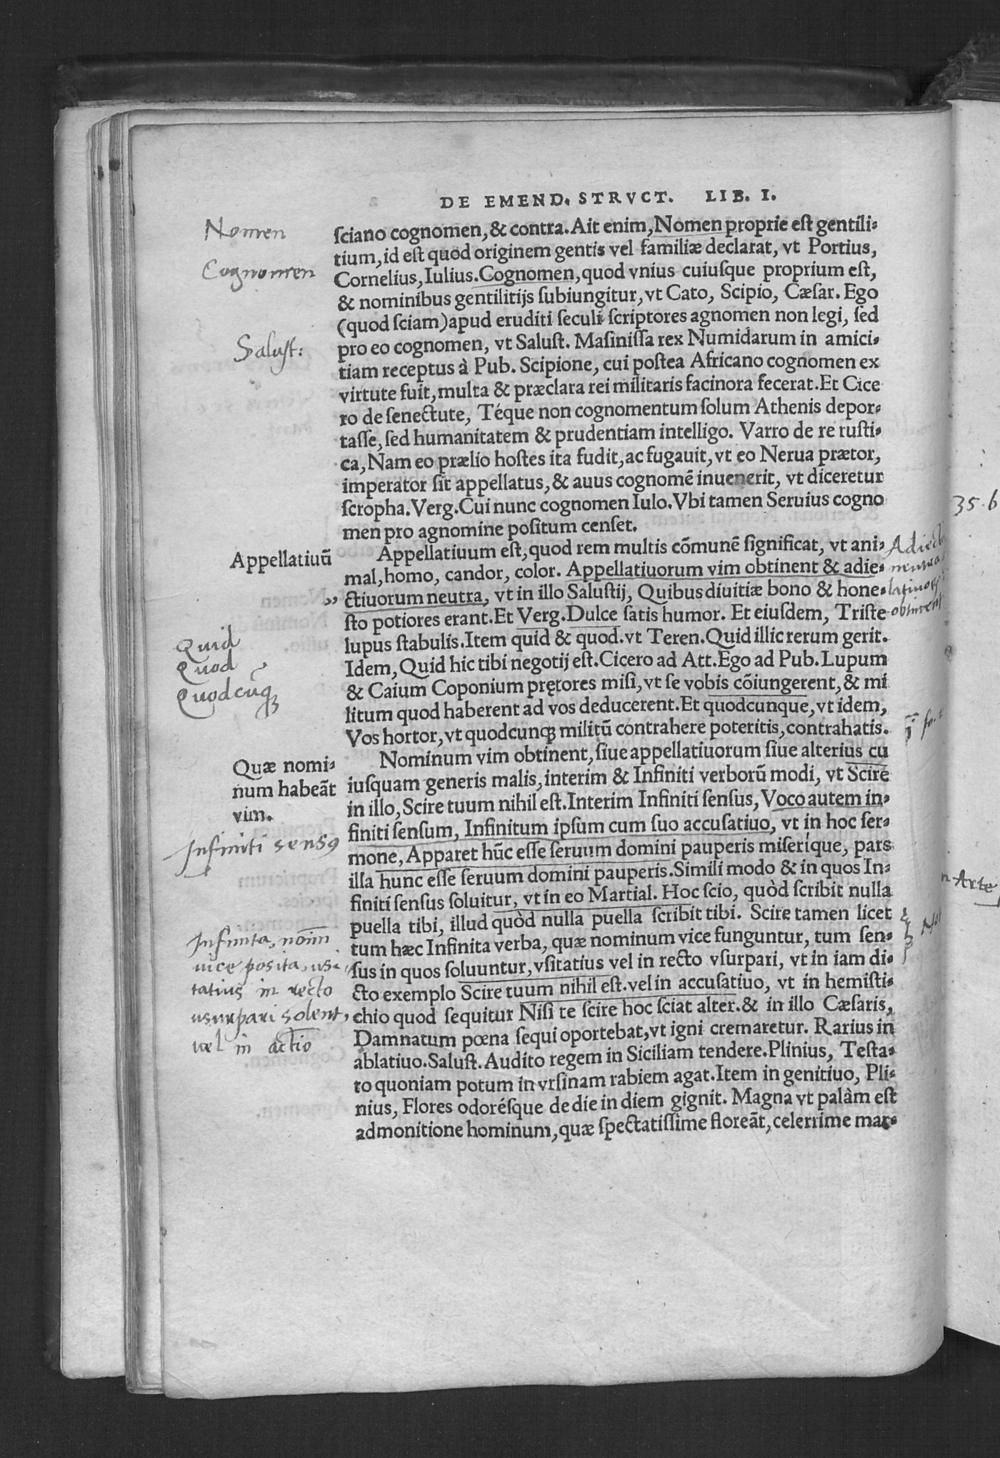 DE EMEND. STRVCT. LIB. I.
ſciano cognomen, & contra. Ait enim, Nomen proprie eſt gentili-
tium, id eſt quod originem gentis vel familiæ declarat, vt Portius,
Cornelius, Iulius. Cognomen, quod vnius cuiuſque proprium eſt,
& nominibus gentilitijs ſubiungitur, vt Cato, Scipio, Cæſar. Ego
(quod ſciam) apud eruditi ſeculi ſcriptores agnomen non legi, ſed
pro eo cognomen, vt Saluſt. Maſiniſſa rex Numidarum in amici-
tiam receptus à Pub. Scipione, cui poſtea Africano cognomen ex
virtute fuit, multa & præclara rei militaris facinora fecerat. Et Cice
ro de ſenectute, Téque non cognomentum ſolum Athenis depor-
taſſe, ſed humanitatem & prudentiam intelligo. Varro de re ruſti-
ca, Nam eo prælio hoſtes ita fudit, ac fugauit, vt eo Nerua prætor,
imperator ſit appellatus, & auus cognomē inuenerit, vt diceretur
ſcropha. Verg. Cui nunc cognomen Iulo. Vbi tamen Seruius cogno
men pro agnomine poſitum cenſet.
Appellatiuum eſt, quod rem multis cōmunē ſignificat, vt ani-
mal, homo, candor, color. Appellatiuorum vim obtinent & adie-
ctiuorum neutra, vt in illo Saluſtij, Quibus diuitiæ bono & hone-
ſto potiores erant. Et Verg. Dulce ſatis humor. Et eiuſdem, Triſte
lupus ſtabulis. Item quid & quod. vt Teren. Quid illic rerum gerit.
Idem, Quid hic tibi negotij eſt. Cicero ad Att. Ego ad Pub. Lupum
& Caium Coponium prętores miſi, vt ſe vobis cōiungerent, & mi
litum quod haberent ad vos deducerent. Et quodcunque, vt idem,
Vos hortor, vt quodcunq; militū contrahere poteritis, contrahatis.
Nominum vim obtinent, ſiue appellatiuorum ſiue alterius cu
iuſquam generis malis, interim & Infiniti verborū modi, vt Scire
in illo, Scire tuum nihil eſt. Interim Infiniti ſenſus, Voco autem in-
finiti ſenſum, Infinitum ipſum cum ſuo accuſatiuo, vt in hoc ſer-
mone, Apparet hūc eſſe ſeruum domini pauperis miſeríque, pars
illa hunc eſſe ſeruum domini pauperis. Simili modo & in quos In-
finiti ſenſus ſoluitur, vt in eo Martial. Hoc ſcio, quòd ſcribit nulla
puella tibi, illud quòd nulla puella ſcribit tibi. Scire tamen licet
tum hæc Infinita verba, quæ nominum vice funguntur, tum ſen-
ſus in quos ſoluuntur, vſitatius vel in recto vſurpari, vt in iam di-
cto exemplo Scire tuum nihil eſt. vel in accuſatiuo, vt in hemiſti-
chio quod ſequitur Niſi te ſcire hoc ſciat alter. & in illo Cæſaris,
Damnatum pœna ſequi oportebat, vt igni cremaretur. Rarius in
ablatiuo. Saluſt. Audito regem in Siciliam tendere. Plinius, Teſta-
to quoniam potum in vrſinam rabiem agat. Item in genitiuo, Pli-
nius, Flores odoréſque de die in diem gignit. Magna vt palàm eſt
admonitione hominum, quæ ſpectatiſſime floreāt, celerrime mar-
Nomen
Cognomen
Salust:
Appellatiuū
Quid
Quod
Quodcūq;
Quæ nomi-
num habeāt
vim.
Infiniti sensꝰ
Infinita, noīm
uice posita, usi
tatius in recto
usurpari solent,
uel in actīo
Adiect
neutra
latiuor
obtinent
35. b
Arte